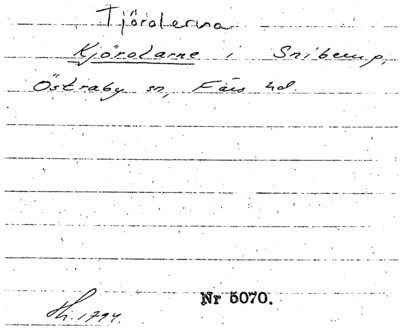 Tjörderna
Kjörolarne i Snibarup,
Östraby sn, Färs hd.
Nr 5070.
Sk. 1794.